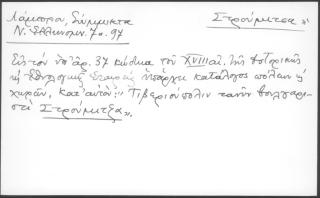 Λάμπρου, Σύμμικτα
Στρούμιτσα
Ν. Ελληνομν. 7ος. 97
Εις τόν ὑπ' ἀρ. 37 κώδικα τοῦ XVIII αἰ. τῆς Ἱστορικῆς
κ' Ἐθνολογικῆς Ἑταιρίας ὑπάρχει κατάλογος πόλεων κ'
χωρῶν, κατ' αὐτόν: "Τιβεριούπολιν τανῦν βουλγαρι-
στὶ Στρούμιτζα».